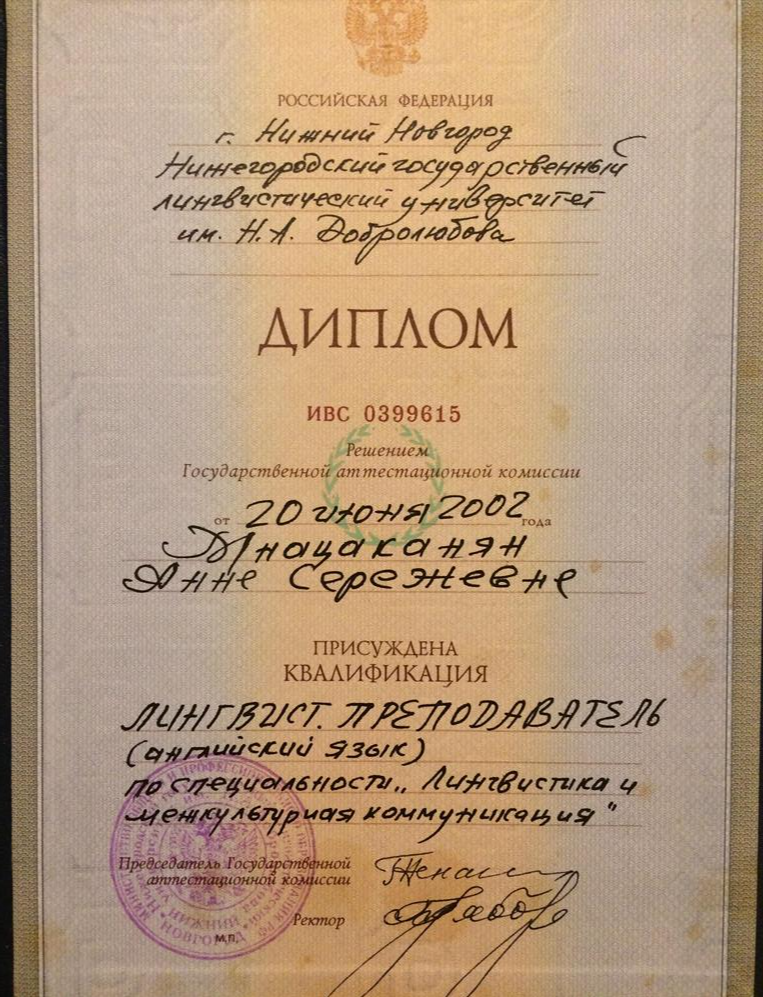 РОССИЙСКАЯ ФЕДЕРАЦИЯ
г. Нижний Новгород
Нижегородский государственный
лингвистический университет
им. Н.А. Добролюбова
ДИПЛОМ
ИВС 0399615
Решением
Государственной аттестационной комиссии
от 20 июня 2002 года
Мнацаканян
Анне Сережевне
ПРИСУЖДЕНА
КВАЛИФИКАЦИЯ
ЛИНГВИСТ. ПРЕПОДАВАТЕЛЬ
(английский язык)
по специальности „Лингвистика и
межкультурная коммуникация"
Председатель Государственной
аттестационной комиссии
Ректор
М.П.
НИЖНИЙ
НОВГОРОД